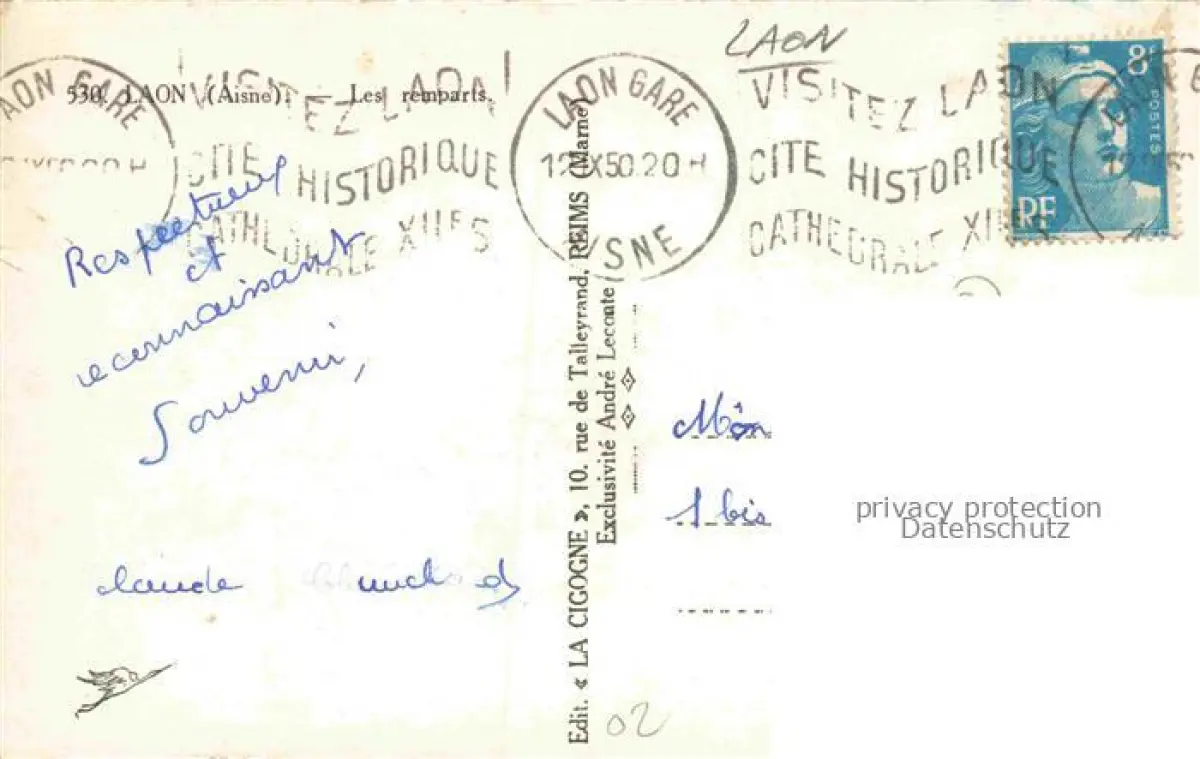 LAON
530. LAON (Aisne). — Les remparts.
LAON GARE
VISITEZ LAON
CITE HISTORIQUE
CATHEDRALE XII E S
LAON GARE
AISNE
VISITEZ LAON
CITE HISTORIQUE
CATHEDRALE XII E S
8F
POSTES
RF
Respectueux
et
reconnaissant
Souvenir,
claude
Edit. « LA CIGOGNE », 10, rue de Talleyrand, REIMS (Marne)
Exclusivité André Leconte
1 bis
privacy protection
Datenschutz
02